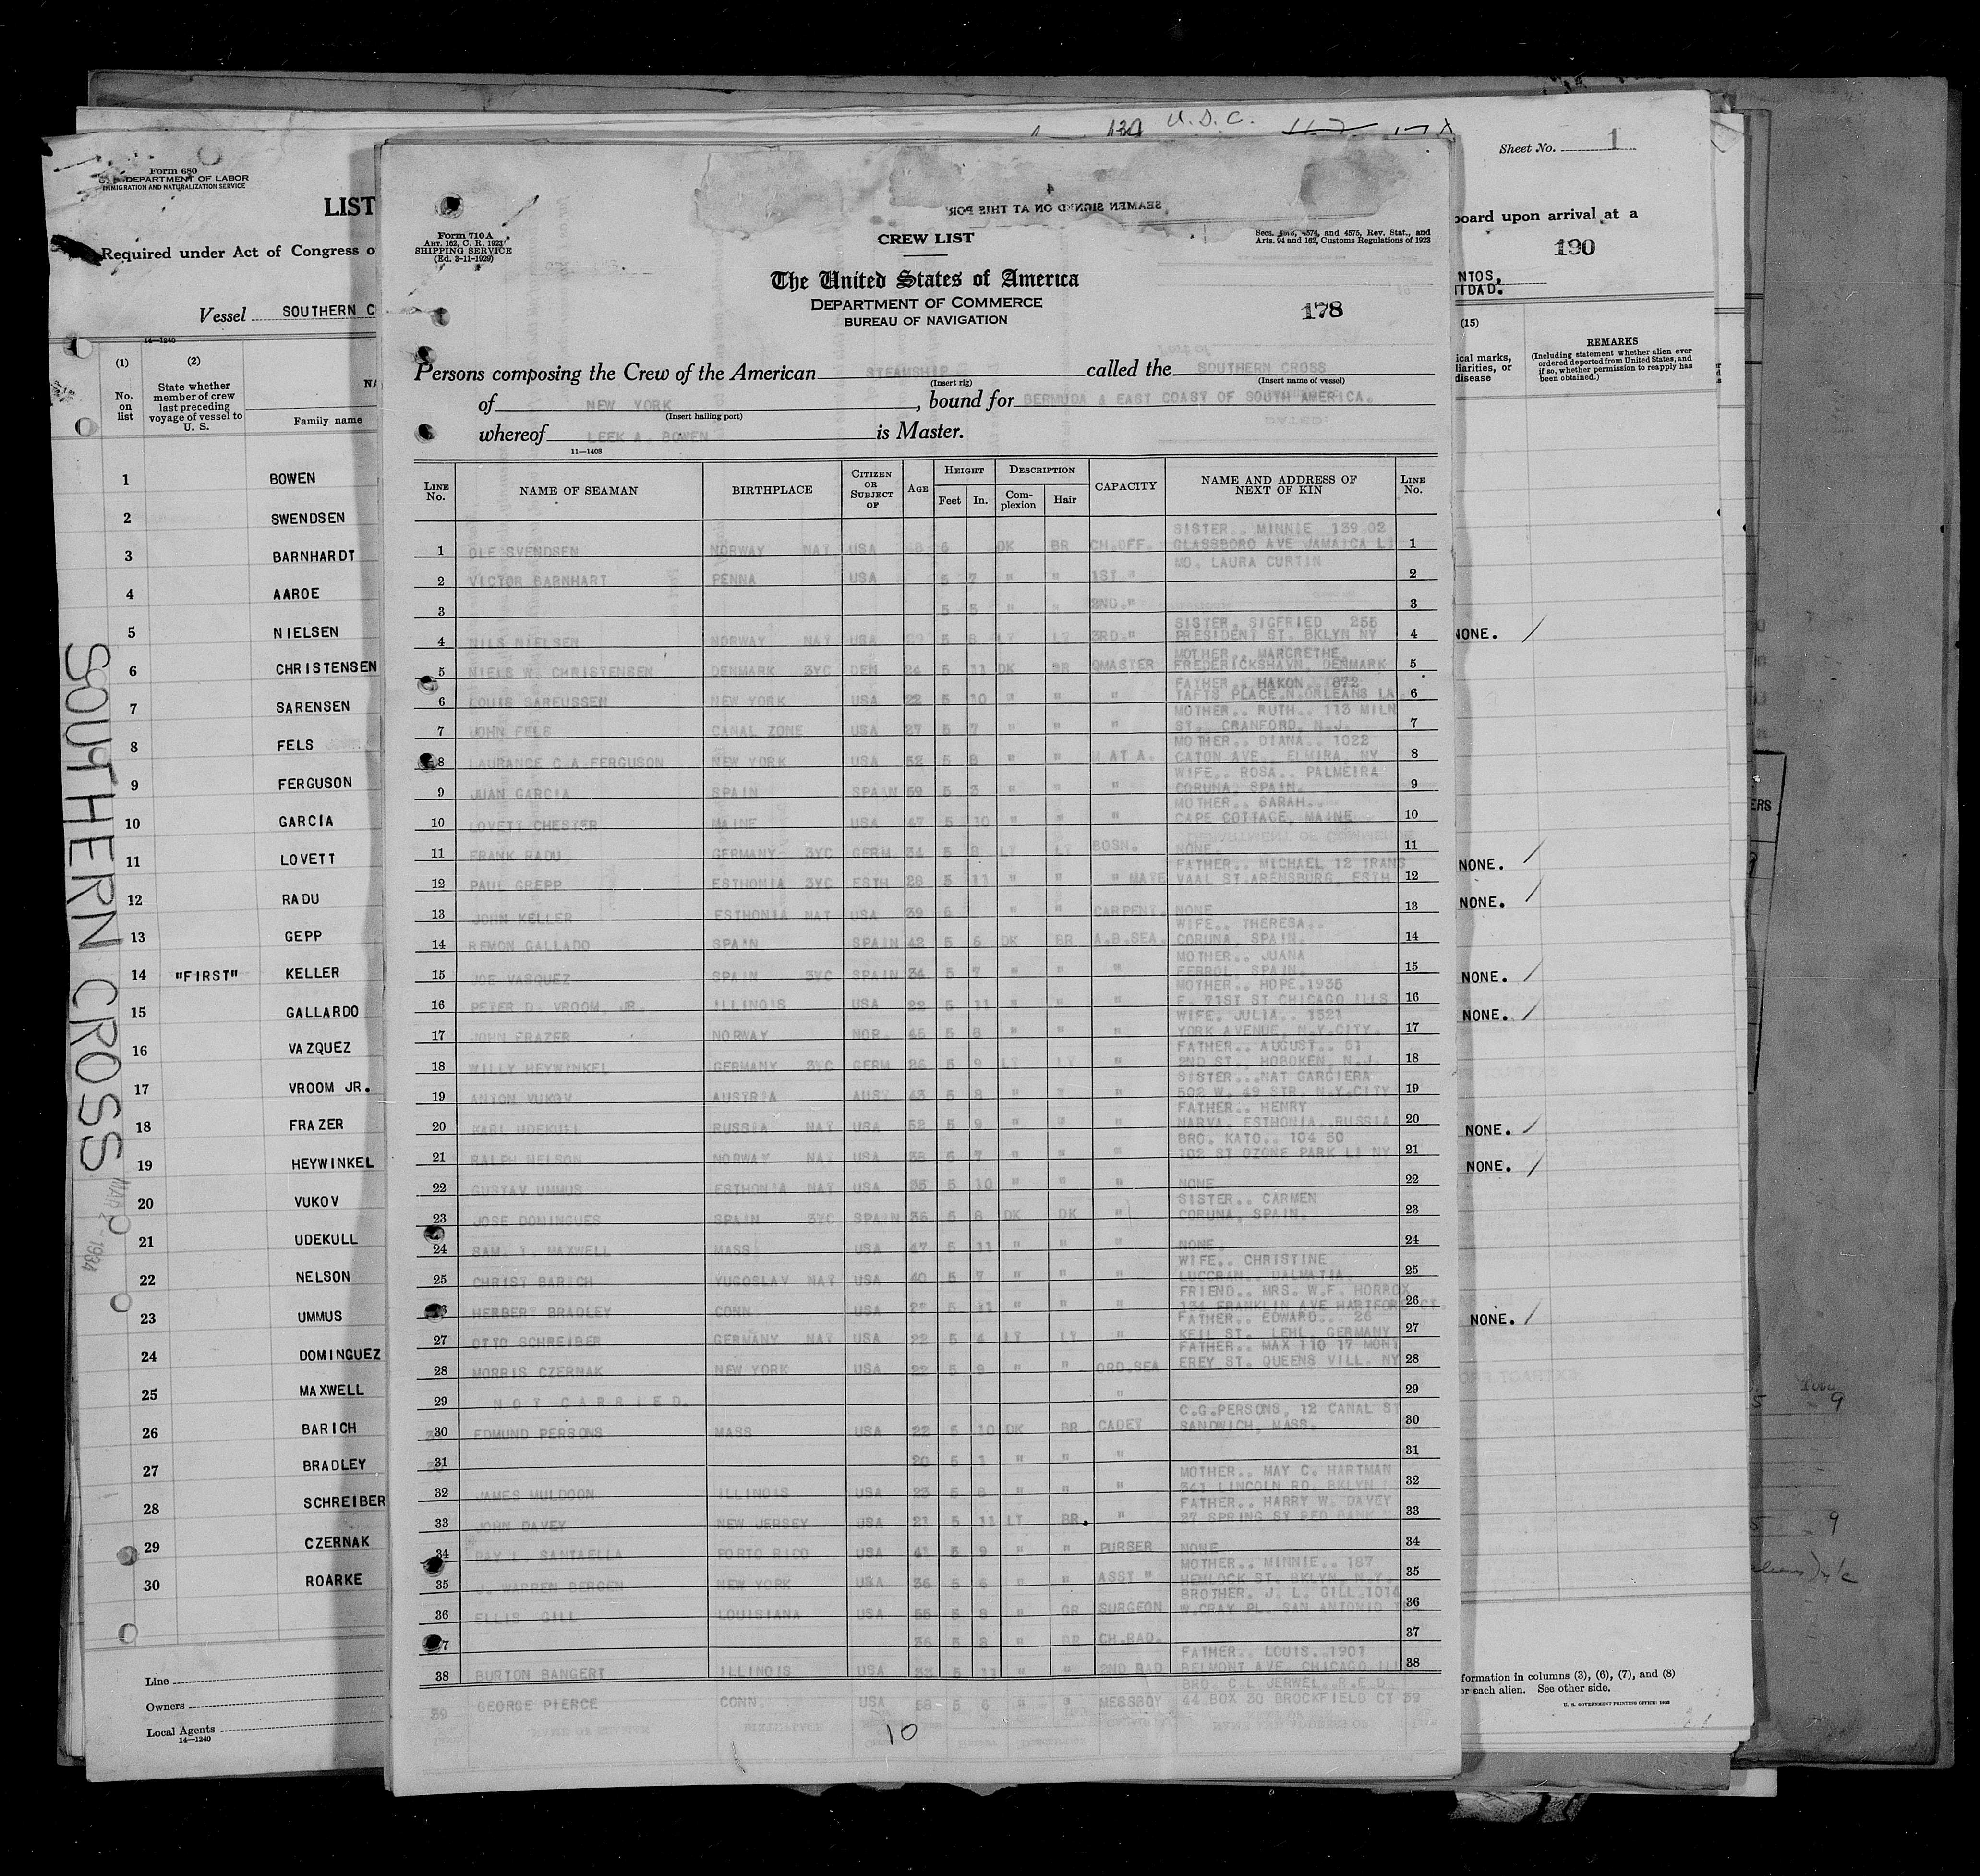 Form 680
U. S. DEPARTMENT OF LABOR
IMMIGRATION AND NATURALIZATION SERVICE
LIST
Required under Act of Congress o
Vessel SOUTHERN C
14—1240
(1) (2)
No. on list
State whether member of crew last preceding voyage of vessel to U. S.
NA
Family name
1 BOWEN
2 SWENDSEN
3 BARNHARDT
4 AAROE
5 NIELSEN
6 CHRISTENSEN
7 SARENSEN
8 FELS
9 FERGUSON
10 GARCIA
11 LOVETT
12 RADU
13 GEPP
14 "FIRST" KELLER
15 GALLARDO
16 VAZQUEZ
17 VROOM JR.
18 FRAZER
19 HEYWINKEL
20 VUKOV
21 UDEKULL
22 NELSON
23 UMMUS
24 DOMINGUEZ
25 MAXWELL
26 BARICH
27 BRADLEY
28 SCHREIBER
29 CZERNAK
30 ROARKE
Line
Owners
Local Agents
14—1240
SOUTHERN CROSS
1934
130 U.D.C.
SEAMEN SIGNED ON AT THIS POR
Form 710 A
ART. 162, C. R. 1923
SHIPPING SERVICE
(Ed. 3-11-1929)
CREW LIST
Arts. 94 and 162, Customs Regulations of 1923
The United States of America
DEPARTMENT OF COMMERCE
BUREAU OF NAVIGATION
178
Persons composing the Crew of the American STEAMSHIP called the SOUTHERN CROSS
(Insert rig) (Insert name of vessel)
of NEW YORK, bound for BERMUDA & EAST COAST OF SOUTH AMERICA.
(Insert hailing port)
whereof LEEK A. BOWEN is Master.
11—1408
LINE No. NAME OF SEAMAN BIRTHPLACE CITIZEN OR SUBJECT OF AGE HEIGHT Feet In. DESCRIPTION Complexion Hair CAPACITY NAME AND ADDRESS OF NEXT OF KIN LINE No.
SISTER.. MINNIE 139 02
1 OLE SVENDSEN NORWAY NAT USA 6 DK BR CH.OFF. GLASSBORO AVE JAMAICA LI 1
MO. LAURA CURTIN
2 VICTOR BARNHART PENNA USA 5 7 " " 1ST." 2
3 5 5 " " 2ND." 3
SISTER. SIGFRIED 255
4 NILS NIELSEN NORWAY NAT USA 29 5 8 LT LT 3RD." PRESIDENT ST. BKLYN NY 4
MOTHER.. MARGRETHE.
5 NIELS W. CHRISTENSEN DENMARK 3YC DEN 24 5 11 DK BR QMASTER FREDERICKSHAVN, DENMARK 5
FATHER.. HAKON.. 872
6 LOUIS SAREUSSEN NEW YORK USA 22 5 10 " " " TAFTS PLACE N.ORLEANS LA 6
MOTHER.. RUTH.. 113 MILN
7 JOHN FELS CANAL ZONE USA 27 5 7 " " " ST. CRANFORD, N.J. 7
MOTHER.. DIANA.. 1022
8 LAURANCE C.A.FERGUSON NEW YORK USA 52 5 8 " " M AT A. CATON AVE. ELMIRA, NY 8
WIFE.. ROSA.. PALMEIRA
9 JUAN GARCIA SPAIN SPAIN 59 5 3 " " " CORUNA, SPAIN. 9
MOTHER.. SARAH..
10 LOVETT CHESTER MAINE USA 47 5 10 " " " CAPE COTTAGE, MAINE 10
11 FRANK RADU GERMANY 3YC GERM 34 5 8 LT LT BOSN. NONE. 11
FATHER.. MICHAEL 12 TRANS
12 PAUL GREPP ESTHONIA 3YC ESTH 28 5 11 " " " MATE VAAL ST.ARENSBURG, ESTH 12
13 JOHN KELLER ESTHONIA NAT USA 39 6 " " CARPENT. NONE 13
WIFE.. THERESA..
14 REMON GALLADO SPAIN SPAIN 42 5 6 DK BR A.B.SEA. CORUNA, SPAIN. 14
MOTHER.. JUANA
15 JOE VASQUEZ SPAIN 3YC SPAIN 34 5 7 " " " FERROL, SPAIN. 15
MOTHER.. HOPE.1935
16 PETER D. VROOM, JR. ILLINOIS USA 22 5 11 " " " E. 71ST ST CHICAGO ILLS 16
WIFE. JULIA.. 1521
17 JOHN FRAZER NORWAY NOR. 46 5 8 " " " YORK AVENUE, N.Y.CITY. 17
FATHER.. AUGUST.. 51
18 WILLY HEYWINKEL GERMANY 3YC GERM 26 5 9 LT LT " 2ND ST., HOBOKEN, N.J. 18
SISTER...NAT GARGIERA
19 ANTON VUKOV AUSTRIA AUST 43 5 8 " " " 502 W. 49 STR. N.Y.CITY 19
FATHER.. HENRY
20 KARL UDEKULL RUSSIA NAT USA 52 5 9 " " " NARVA, ESTHONIA..RUSSIA 20
BRO. KATO.. 104 50
21 RALPH NELSON NORWAY NAT USA 38 5 7 " " " 102 ST OZONE PARK LI NY 21
22 GUSTAV UMMUS ESTHONIA NAT USA 35 5 10 " " " NONE 22
SISTER.. CARMEN
23 JOSE DOMINGUES SPAIN 3YC SPAIN 36 5 8 DK DK " CORUNA, SPAIN. 23
24 SAM. T. MAXWELL MASS USA 47 5 11 " " " NONE. 24
WIFE.. CHRISTINE
25 CHRIST BARICH YUGOSLAV NAT USA 40 5 7 " " " LUCCRAN.. DALMATIA. 25
FRIEND.. MRS. W.F. HORROX
HERBERT BRADLEY CONN. USA 5 11 " " " 134 FRANKLIN AVE HARTFORD CT. 26
FATHER.. EDWARD... 26
27 OTTO SCHREIBER GERMANY NAT USA 22 5 4 LT LT " KEIL ST. LEHI, GERMANY 27
FATHER.. MAX 110 17 MONT
28 MORRIS CZERNAK NEW YORK USA 22 5 9 " " ORD.SEA EREY ST. QUEENS VILL. NY 28
29 NOT CARRIED. " 29
C.G.PERSONS, 12 CANAL ST
30 EDMUND PERSONS MASS USA 22 5 10 DK BR CADET SANDWICH, MASS. 30
31 20 5 1 " " " 31
MOTHER.. MAY C. HARTMAN
32 JAMES MULDOON ILLINOIS USA 23 5 8 " " " 341 LINCOLN RD. BKLYN 32
FATHER.. HARRY W. DAVEY
33 JOHN DAVEY NEW JERSEY USA 21 5 11 LT BR. " 27 SPRING ST RED BANK " 33
34 RAY L. SANTAELLA PORTO RICO USA 41 5 9 " " PURSER NONE 34
MOTHER.. MINNIE.. 187
35 J. WARREN BERGEN NEW YORK USA 36 5 6 " " ASST " HEMLOCK ST. BKLYN, N.Y. 35
BROTHER. J. L. GILL 1014
36 ELLIS GILL LOUISIANA USA 55 5 8 " GR SURGEON W.CRAY PL. SAN ANTONIO 36
36 5 8 " BR CH.RAD. 37
FATHER.. LOUIS..1901
38 BURTON BANGERT ILLINOIS USA 32 5 11 " " 2ND RAD BELMONT AVE. CHICAGO ILL 38
BRO. C L JERWEL..R.E.D.
39 GEORGE PIERCE CONN. USA 58 5 6 " " MESSBOY 44 BOX 30 BROCKFIELD CT 39
10
Sheet No. 1
board upon arrival at a
190
NTOS.
IDAD.
(15)
ical marks,
liarities, or
disease
REMARKS
(Including statement whether alien ever ordered deported from United States, and if so, whether permission to reapply has been obtained.)
NONE. /
NONE. /
NONE. /
NONE. /
NONE. /
NONE. /
NONE. /
NONE. /
formation in columns (3), (6), (7), and (8)
or each alien. See other side.
U. S. GOVERNMENT PRINTING OFFICE
ERS
5 9
5 9